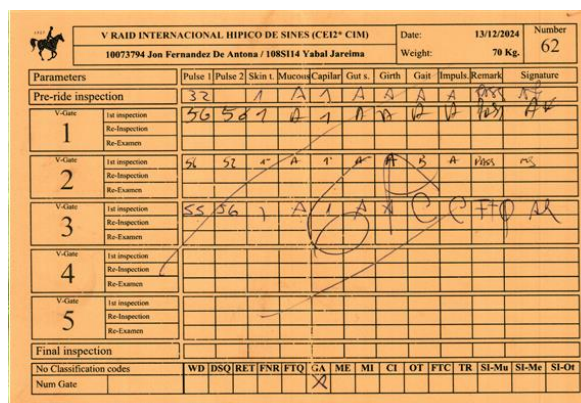 V RAID INTERNACIONAL HIPICO DE SINES (CEI2* CIM) Date: 13/12/2024 Number
10073794 Jon Fernandez De Antona / 108SI14 Yabal Jareima Weight: 70 Kg. 62
Parameters Pulse 1 Pulse 2 Skin t. Mucous Capilar Gut s. Girth Gait Impuls. Remark Signature
Pre-ride inspection 32 1 A 1 A A A A
V-Gate 1st inspection 56 58 1 A 1 A A A A Pass
1 Re-Inspection
Re-Examen
V-Gate 1st inspection 56 52 A A A B A Pass
2 Re-Inspection
Re-Examen
V-Gate 1st inspection 55 56 1 A 1 A A C C FTQ
3 Re-Inspection
Re-Examen
V-Gate 1st inspection
4 Re-Inspection
Re-Examen
V-Gate 1st inspection
5 Re-Inspection
Re-Examen
Final inspection
No Classification codes WD DSQ RET FNR FTQ GA ME MI CI OT FTC TR SI-Mu SI-Me SI-Ot
Num Gate